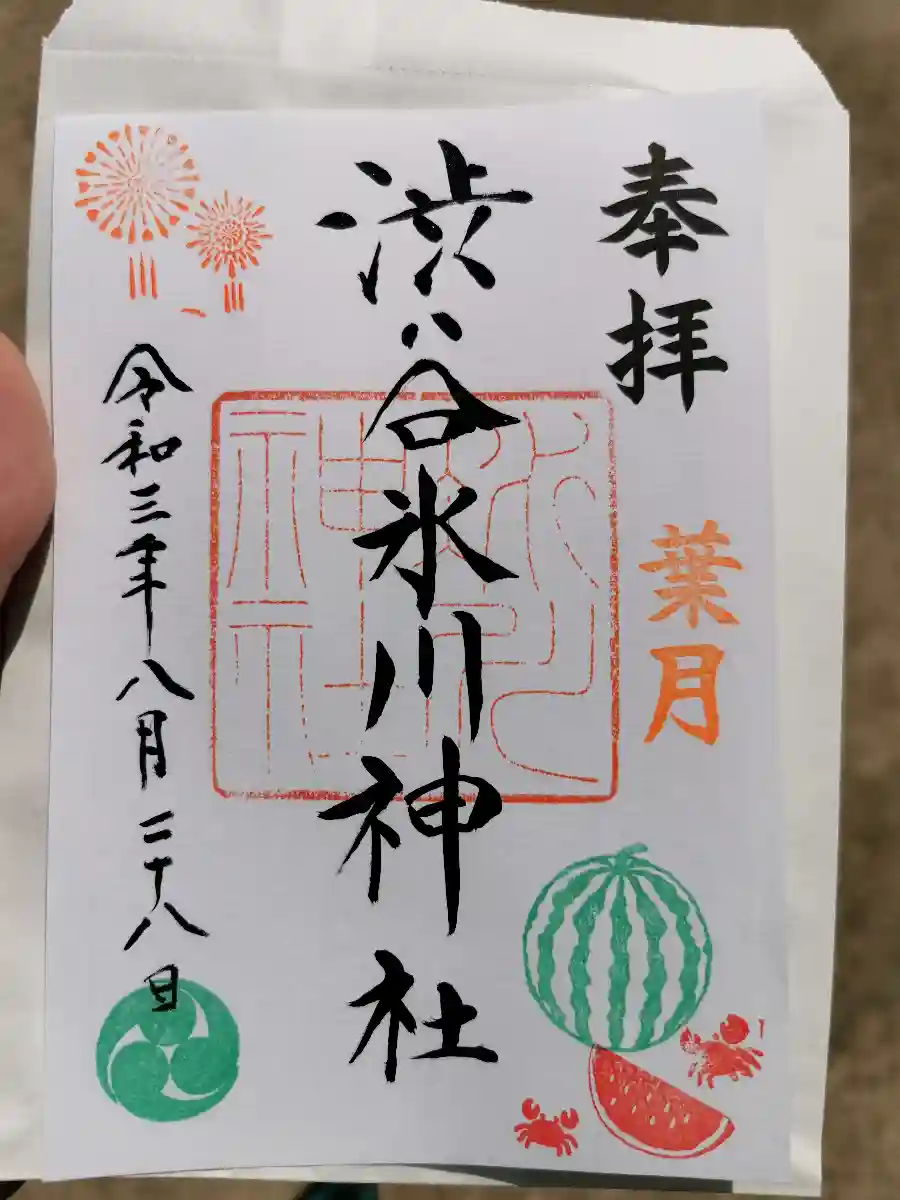 奉拝
葉月
渋谷氷川神社
氷川
神社
令和三年八月二十八日